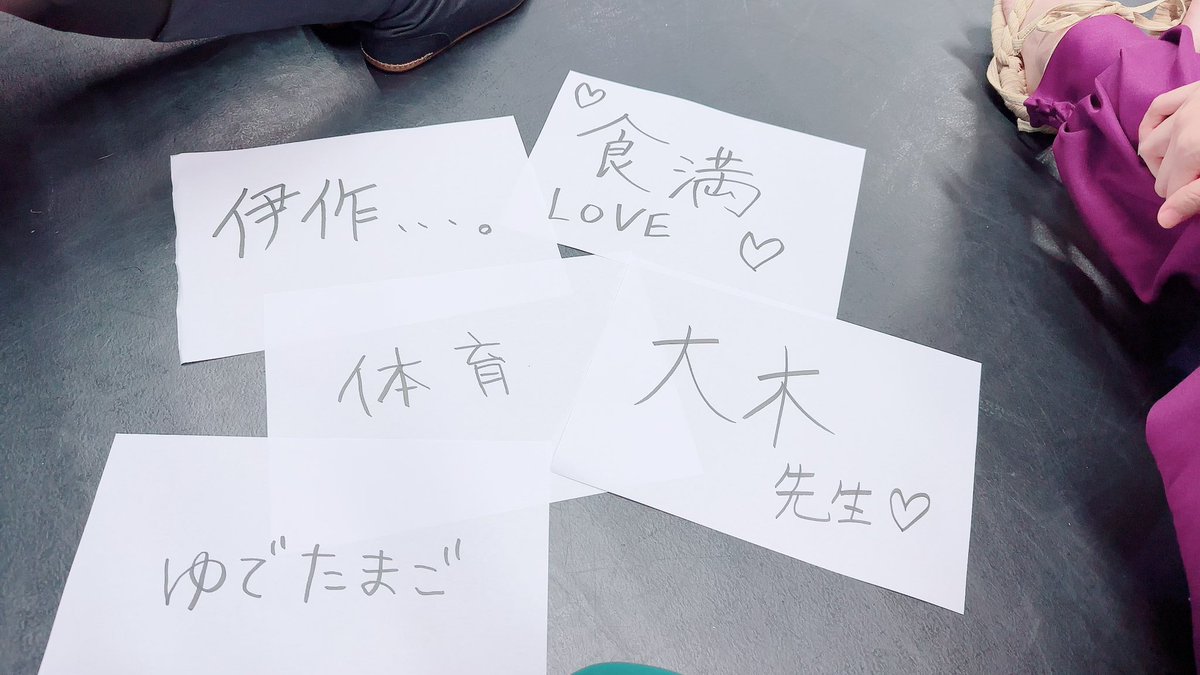 伊作…。
♡食満
LOVE♡
体育
大木
先生♡
ゆでたまご